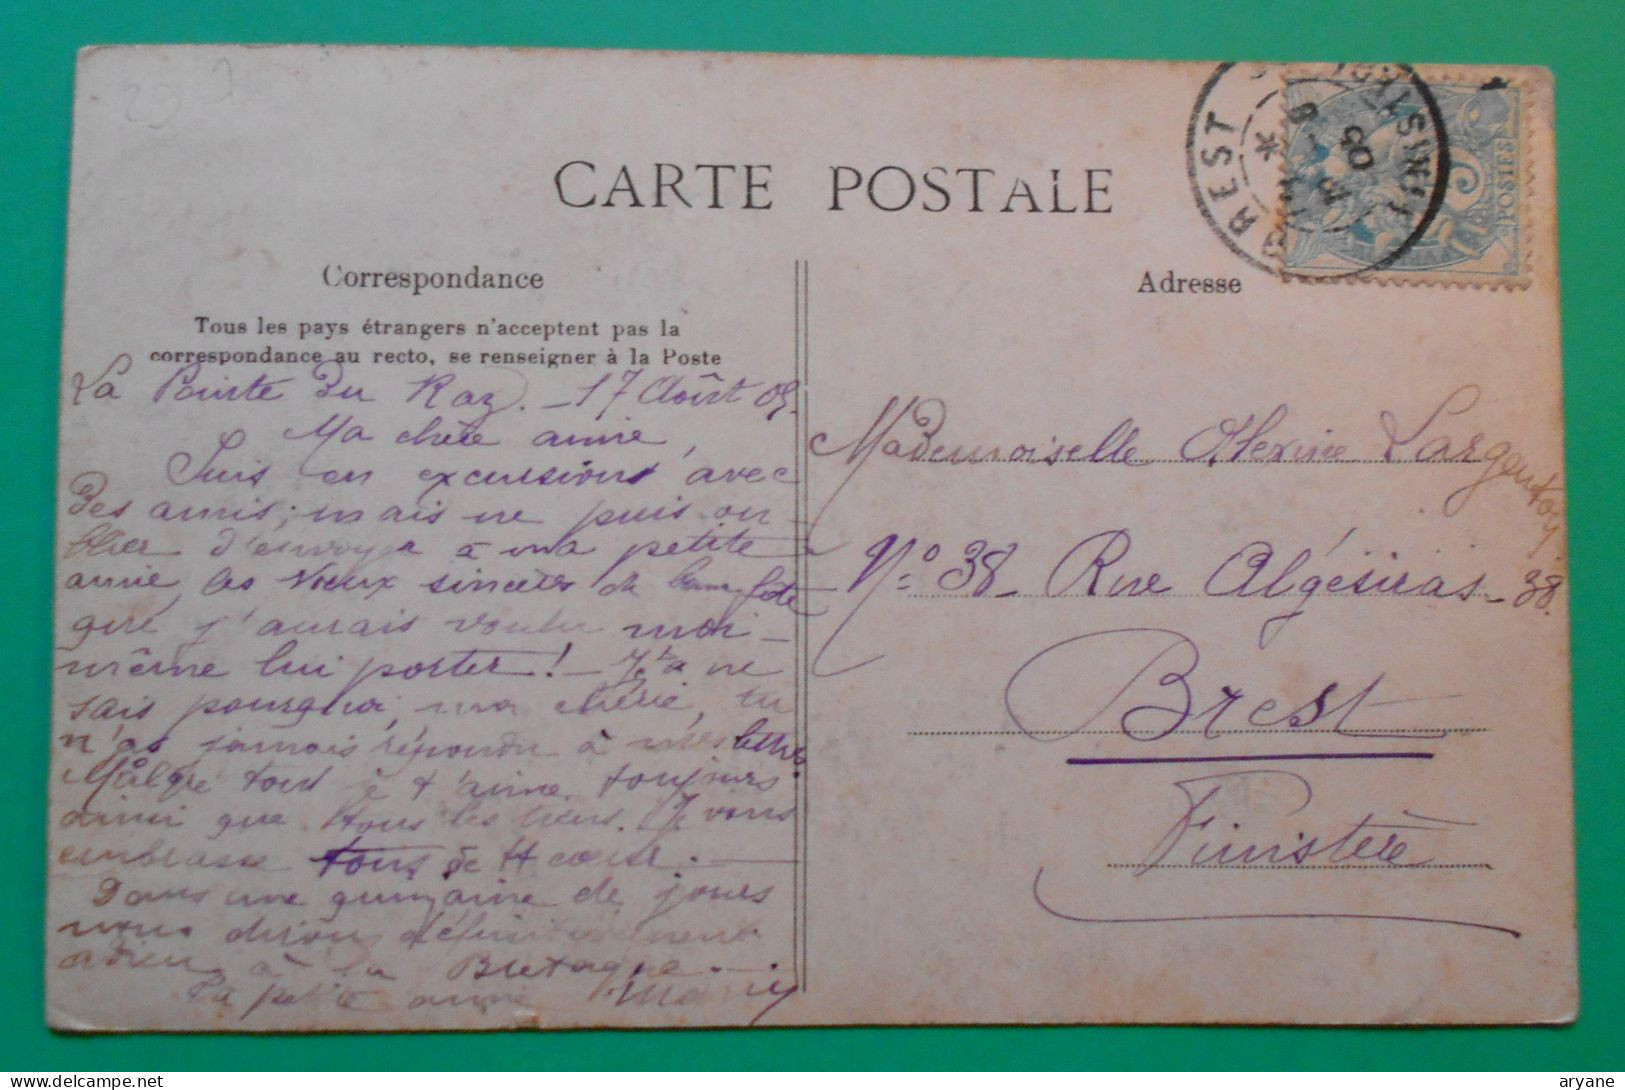 CARTE POSTALE
Correspondance
Tous les pays étrangers n'acceptent pas la
correspondance au recto, se renseigner à la Poste
La Pointe du Raz. _ 17 Août 05.
Ma chère amie,
Suis en excursions avec
des amis; mais ne puis ou-
blier d'envoyer à ma petite
amie les vœux sincères de bonne fête
que j'aurais voulu moi-
même lui porter! _ Je ne
sais pourquoi, ma chérie, tu
n'as jamais répondu à mes lettres.
Malgré tout je t'aime toujours
ainsi que tous les tiens. Je vous
embrasse tous de tt cœur.
Dans une quinzaine de jours
nous dirons définitivement
adieu à la Bretagne.
Ta petite amie
Adresse
Mademoiselle Alexine Largenton
N° 38 _ Rue Algésiras _ 38.
Brest
Finistère
BREST
POSTES
aryane